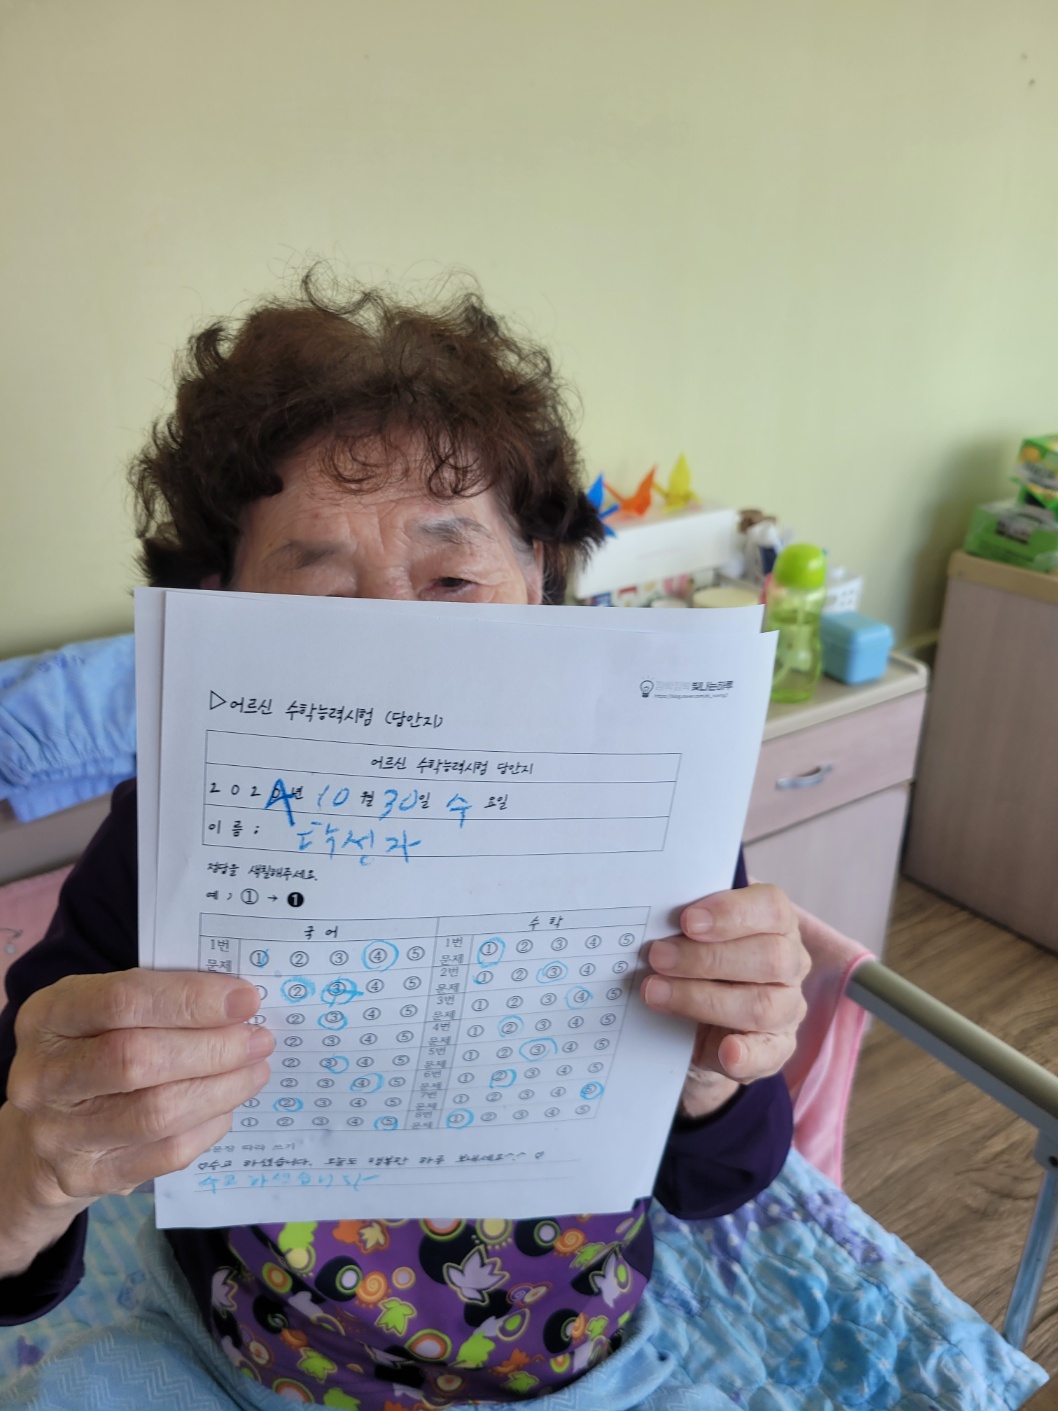 깜빡깜빡 빛나는하루
▷어르신 수학능력시험 (답안지)
어르신 수학능력시험 답안지
2020년 10월 30일 수요일
이름: 탁성자
정답을 색칠해주세요.
예) ① → ❶
국어 수학
1번 문제 ① ② ③ ④ ⑤ 1번 문제 ① ② ③ ④ ⑤
② ③ ④ ⑤ 2번 문제 ① ② ③ ④ ⑤
① ② ③ ④ ⑤ 3번 문제 ① ② ③ ④ ⑤
② ③ ④ ⑤ 4번 문제 ① ② ③ ④ ⑤
② ③ ④ ⑤ 5번 문제 ① ② ③ ④ ⑤
② ③ ④ ⑤ 6번 문제 ① ② ③ ④ ⑤
① ② ③ ④ ⑤ 7번 문제 ① ② ③ ④ ⑤
① ② ③ ④ ⑤ 8번 문제 ① ② ③ ④ ⑤
따라 쓰기
수고 하셨습니다. 오늘도 행복한 하루 보내세요^^
수고 하셨습니다